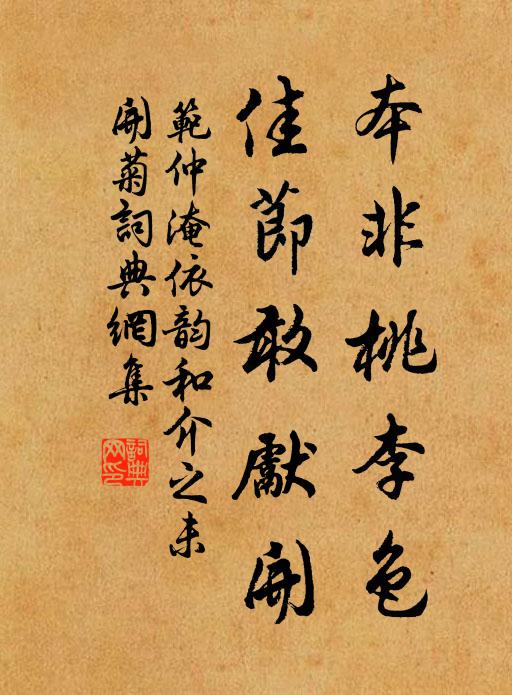 本非桃李色
佳節敢獻開
範仲淹依韵和介之未
開菊詞典網集
詞典
网印